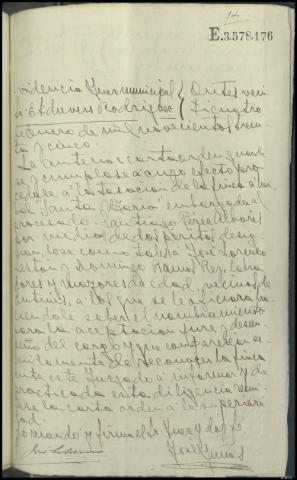 14
E.3.578.176
videncia Juez municipal Antes vein
Sr. Estevez Rodriguez ticuatro
de Enero de mil novecientos trein
ta y cinco.
La anterior carta orden guarde
se y cumplase a cuyo efecto pro
cedase a la tasacion de la finca
"Santa Maria" embargada al
procesado Santiago Perez Albores
por medio de dos peritos desig
nandose como tales a José Lorenzo
y Domingo Ramos Rey, labra
dores y mayores de edad, vecinos de
a los que se le avisara ha
ciendole saber el nombramiento
para la aceptacion jura y desem
peño del cargo y que comparezcan se
guidamente de reconocer la finca
ante este Juzgado a informar y
practicada esta diligencia remi
tase la carta orden a la superiori
dad.
Lo mando y firma el Sr Juez y doy fe